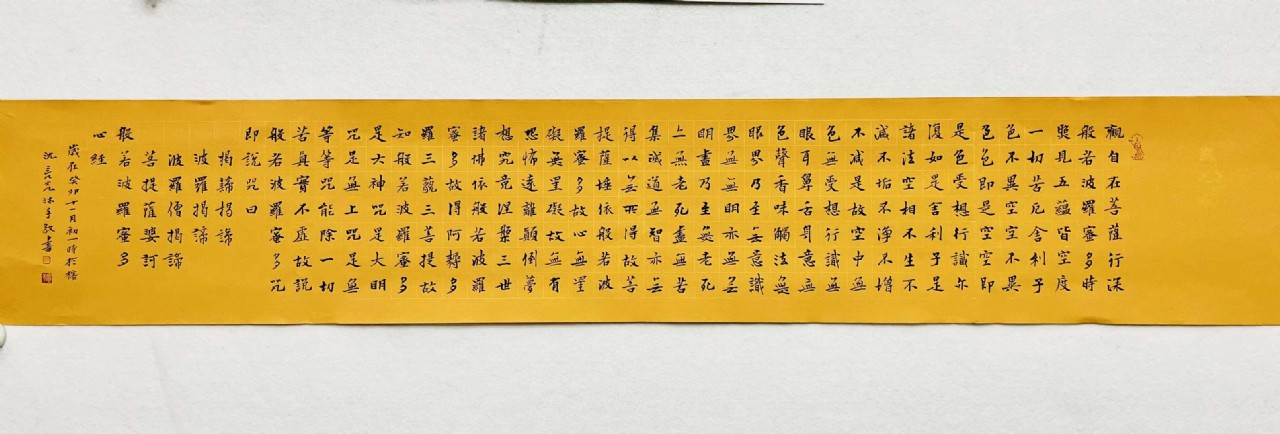 觀自在菩薩行深
般若波羅蜜多時
照見五蘊皆空度
一切苦厄舍利子
色不異空空不異
色色即是空空即
是色受想行識亦
復如是舍利子是
諸法空相不生不
滅不垢不淨不增
不減是故空中無
色無受想行識無
眼耳鼻舌身意無
色聲香味觸法無
眼界乃至無意識
界無無明亦無無
明盡乃至無老死
亦無老死盡無苦
集滅道無智亦無
得以無所得故菩
提薩埵依般若波
羅蜜多故心無罣
礙無罣礙故無有
恐怖遠離顛倒夢
想究竟涅槃三世
諸佛依般若波羅
蜜多故得阿耨多
羅三藐三菩提故
知般若波羅蜜多
是大神咒是大明
咒是無上咒是無
等等咒能除一切
苦真實不虛故說
般若波羅蜜多咒
即說咒曰
揭諦揭諦
波羅揭諦
波羅僧揭諦
菩提薩婆訶
般若波羅蜜多
心經
歲在癸卯十一月初一時於
沈沐手敬書